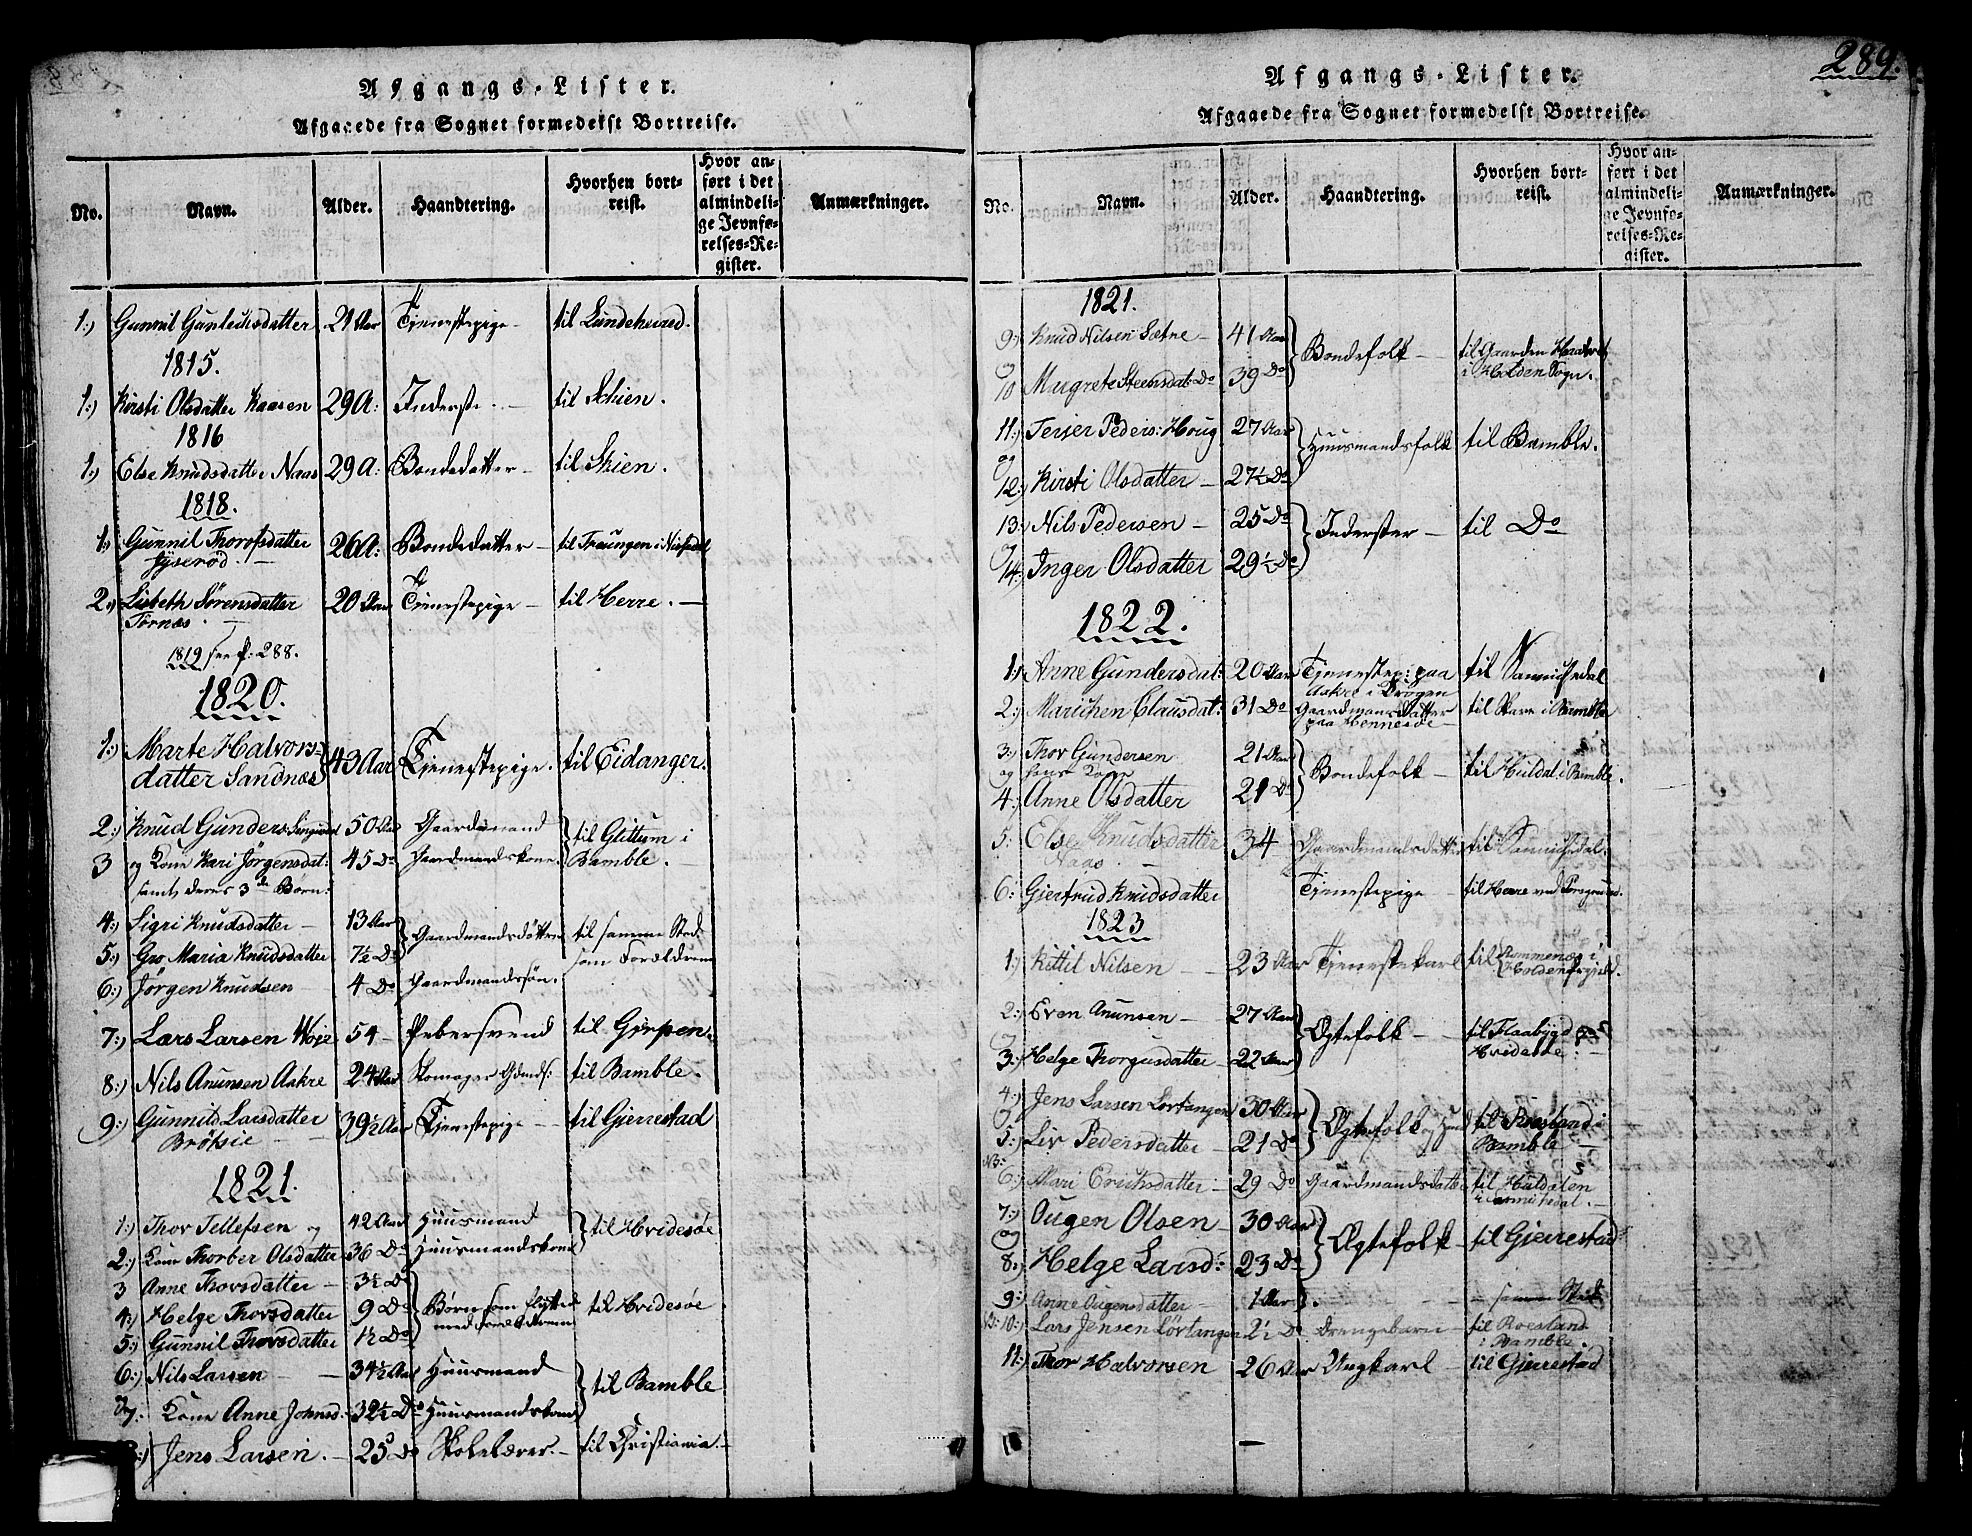 289.
Afgangs-Lister.
Afgaaede fra Sognet formedelst Bortreise.
No. Navn. Alder. Haandtering. Hvorhen bortreist. Hvor anført i det almindelige Jevnførelses-Register. Anmærkninger.
1:) Gunnil Gunleiksdatter 21 Aar Tjenestepige - til Lundeherred.
1815.
1:) Kirsti Olsdatter Kaasen 29 A: Inderste - til Schien.
1816
1:) Else Knudsdatter Naas 29 A: Bondedatter - til Skien.
1818.
1:) Gunnil Thorofsdatter 26 A: Bondedatter - til Traungen i
Jyserød. -
2:) Lisbeth Sørensdatter 20 Aar Tjenestepige - til Herre. -
Tørnæs. -
1819 see p: 288.
1820.
1:) Marte Halvors-
datter Sandnæs 43 Aar Tjenestepige. til Eidanger.
2:) Knud Gunders: 50 Aar Gaardmand til Glittum i
3 og Kone Kari Jørgensdat: 45 Do Gaardmandskone Bamble. -
samt deres 3de Børn:
4:) Sigri Knudsdatter - 13 Aar Gaardmandsdøttre til samme Sted
5:) Gro Maria Knudsdatter 7½ Do som Forældrene
6:) Jørgen Knudsen 4 Do Gaardmandssøn.
7:) Lars Larsen Høje 54 - Pebersvend til Gjerpen.
8:) Nils Anunsen Aakre 24 Aar Skomager til Bamble.
9:) Gunnild Larsdatter 39½ Aar Tjenestepige - til Gjerrestad
Brøksie -
1821.
1:) Thor Tellefsen og 42 Aar Huusmand til Hvidesøe
2:) Kone Thorber Olsdatter 36 Do Huusmandskone
3 Anne Thorsdatter - 3½ Do
4:) Helge Thorsdatter 9 Do Børn som flytted til Hvidesøe
5:) Gunnil Thorsdatter 1½ Do med Forældrene
6:) Nils Larsen - 34½ Aar Huusmand til Bamble
7: Kone Anne Johnsd. 32½ Do Huusmandskone
8:) Jens Larsen. - 25 Do Skolelærer. - til Christiania. -
Afgangs-Lister.
Afgaaede fra Sognet formedelst Bortreise.
No. Navn. Alder. Haandtering. Hvorhen bortreist. Hvor anført i det almindelige Jevnførelses-Register. Anmærkninger.
1821.
9:) Knud Nilsen Sætre - 41 Aar Bondefolk - til Gaarden
og
10 Margrete Steensdat: Do 39 Do i Holden Sogn.
11:) Terjer Peders: Houg 27 Aar Huusmandsfolk til Bamble.
og
12:) Kirsti Olsdatter - 27½ Do
13:) Nils Pedersen - 25 Do Inderster - til Do
og
14:) Inger Olsdatter 29½ Do
1822.
1:) Anne Gundersdat: 20 Aar Tjenestep: paa til Sannichedal
Aakre i Drøgen
2:) Marichen Clausdat: 31 Do Gaardmansdatter til Skare i Bamble
paa Hennesøe -
3:) Thor Gundersen 21 Aar Bondefolk - til Huldal i Bamble.
og hans Kone
4:) Anne Olsdatter 21 Do
5: Else Knudsdatter 34 Gaardmandsdatter til Sannichedal.
Naas -
6: Giertrud Knudsdatter Tjenestepige til Herre ved Porsgrund.
1823
1:) Kittil Nilsen - - 23 Aar Tjenestekarl til Rommenæs i
Holden
2:) Even Anunsen - 27 Aar Ægtefolk - til Flaabygd
og
3:) Helge Thorgusdatter - 22 Aar Hvidesøe: -
4:) Jens Larsen Lørtangen 30 Aar Ægtefolk til Roesland i
og
5:) Liv Pedersdatter - 21 Do Bamble -
NB:
6:) Mari Erichsdatter - 29 Do Gaardmandsdatter til Huldalen
i Sannichedal. -
7:) Ougen Olsen - 30 Aar Ægtefolk - til Gjerrestad
og
8:) Helge Larsd: 23 Do
9:) Anne Ougensdatter - 1 Aar - - samme Sted
NB: 10:) Lars Jensen Lørtangen 2½ Do Drengebarn - til Roesland
i Bamble.
11:) Thor Halvorsen 26 Aar Ungkarl - til Gjerrestad